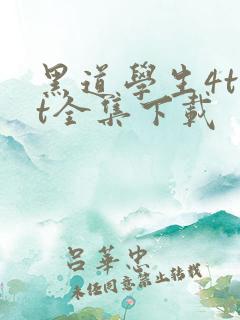 黑道學生4t
t全集下載
呂華忠
未经同意禁止转载